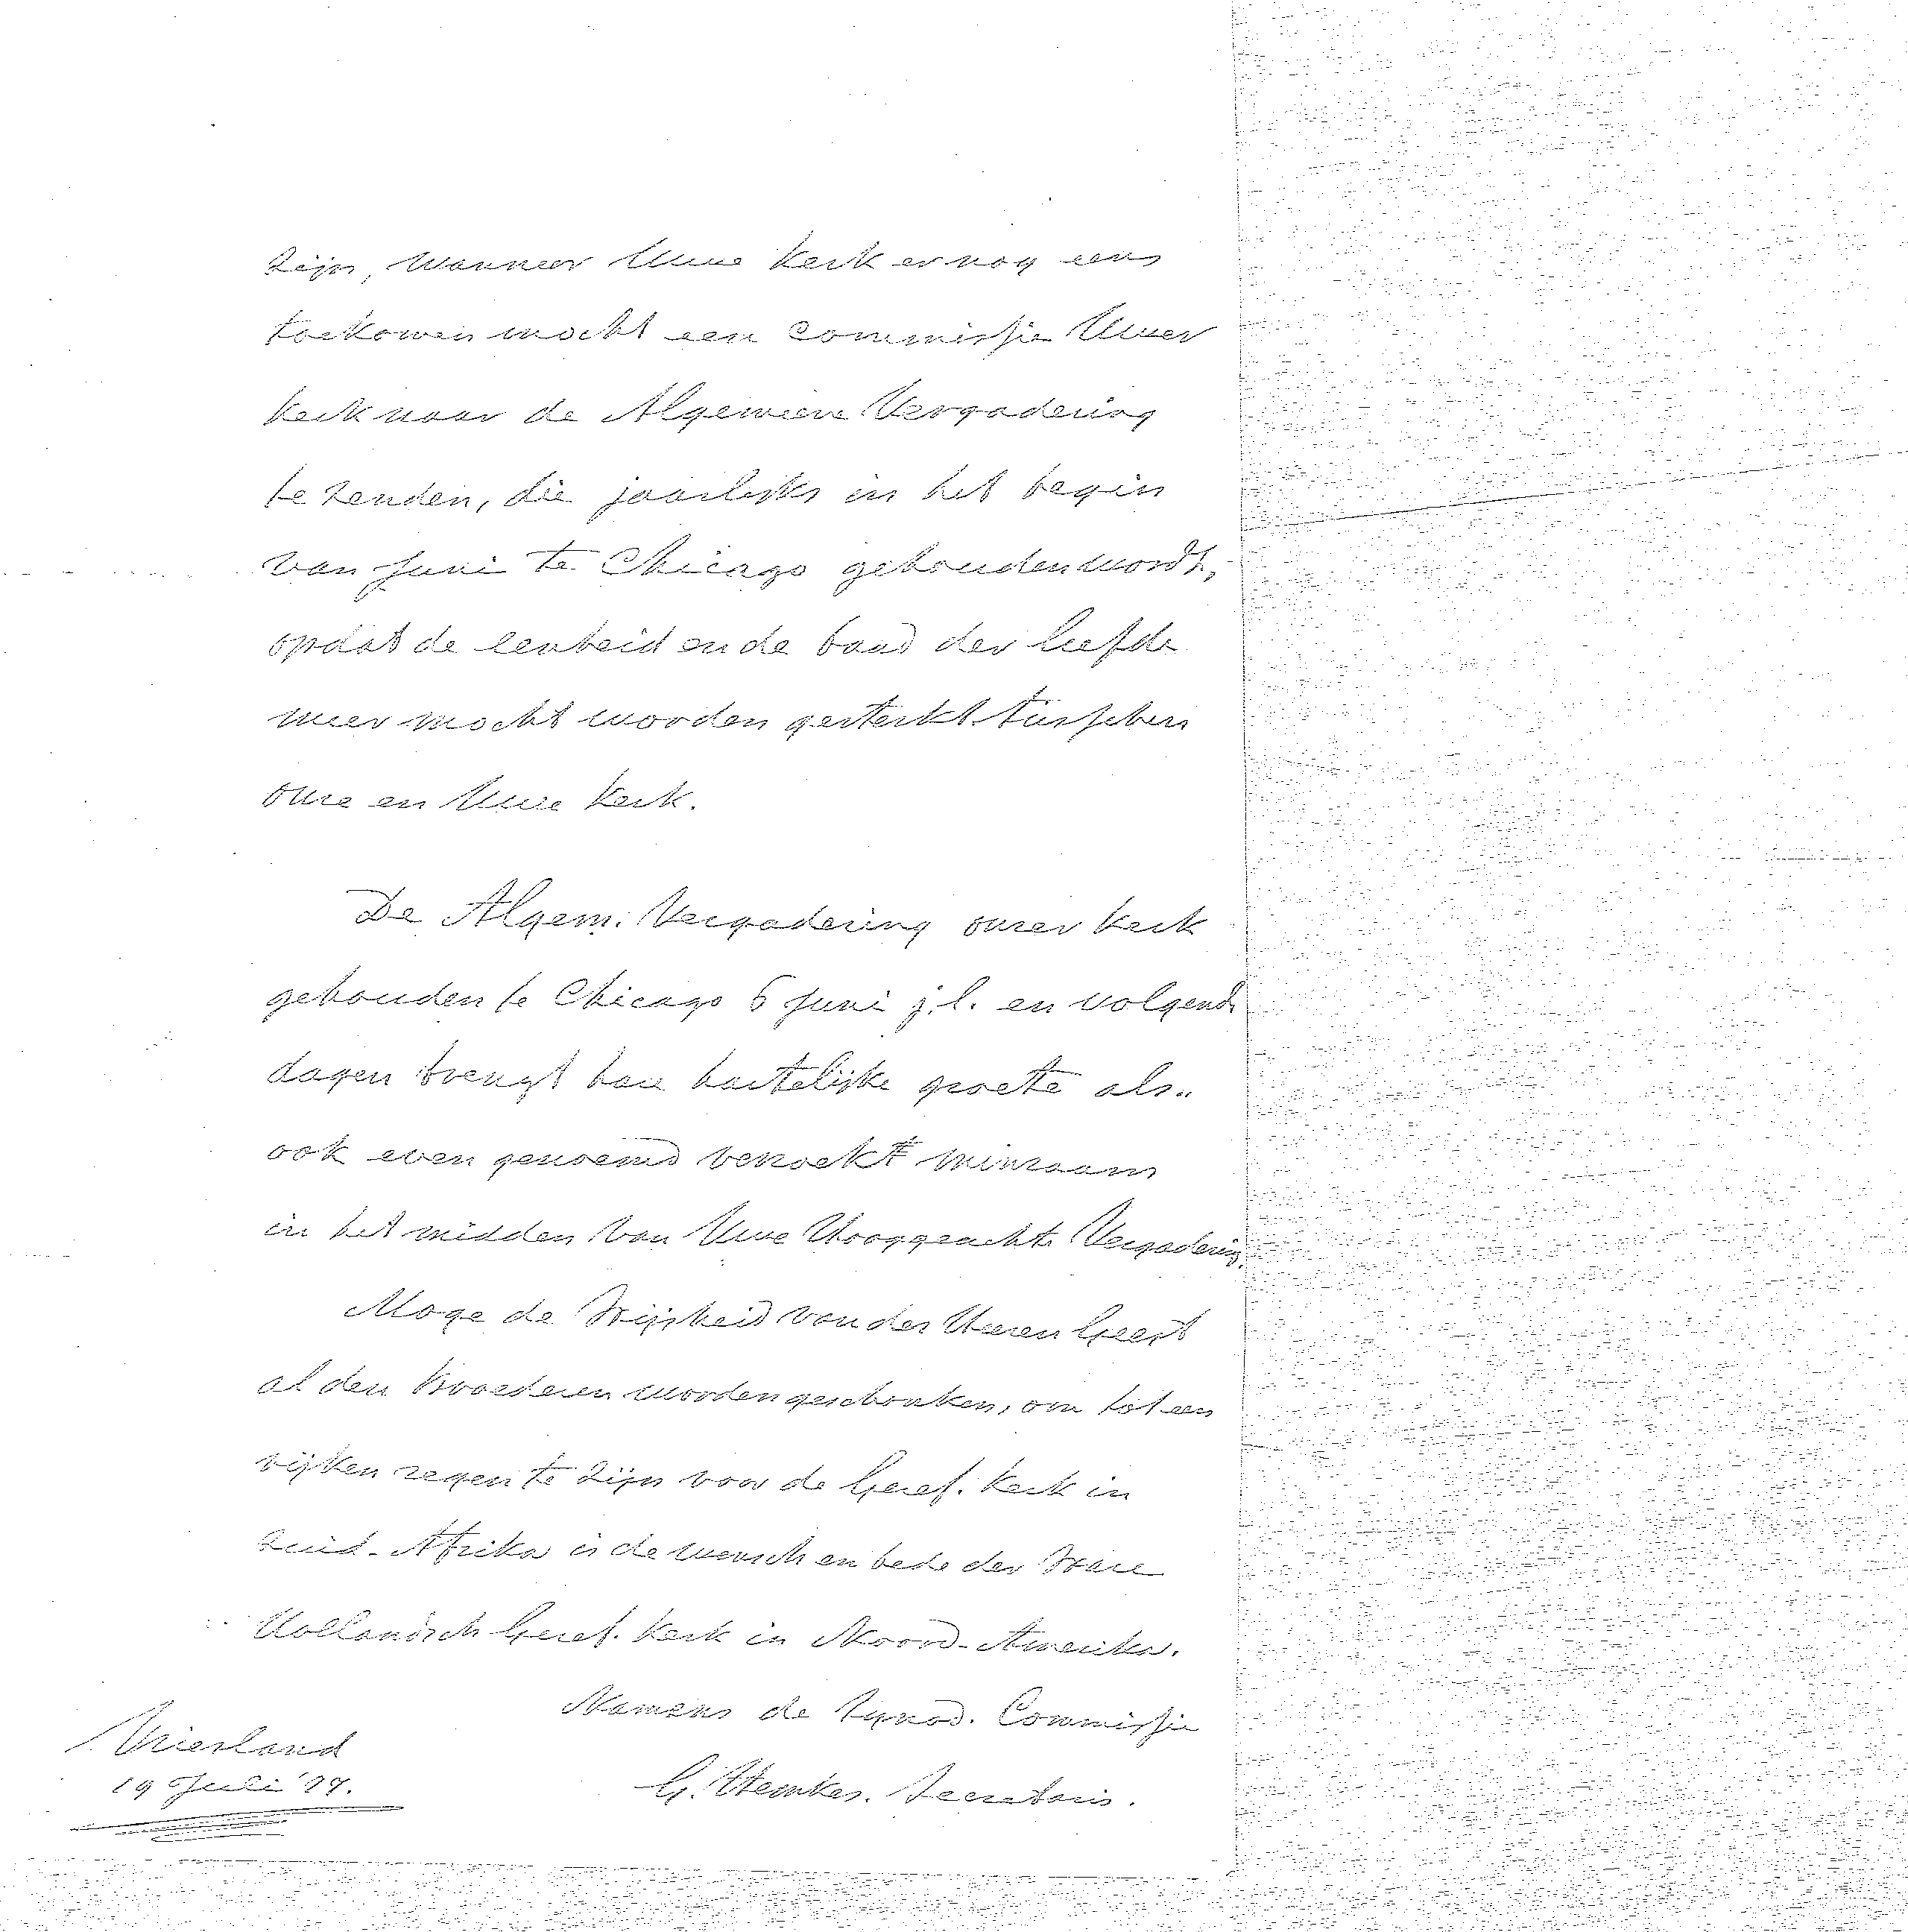 zijn, wanneer Uwe Kerk er nog eens
toekomen mocht een Commissie Uwer
Kerk naar de Algemeene Vergadering
te zenden, die jaarlijks in het begin
van Juni te Chicago gehouden wordt,
opdat de eenheid en de band der liefde
meer mocht worden gesterkt tusschen
onze en Uwe Kerk.
De Algem. Vergadering onzer Kerk
gehouden te Chicago 6 Juni j.l. en volgende
dagen brengt hare hartelijke groete als
ook even genoemd verzoek minzaam
in het midden van Uwe Hooggeachte Vergadering.
Moge de Wijsheid van den Heiligen Geest
al den Broederen worden geschonken, om tot een
rijken zegen te zijn voor de Geref. Kerk in
Zuid-Afrika is de wensch en bede der Ware
Hollandsch Geref. Kerk in Noord-Amerika.
Namens de Synod. Commissie
Vriesland
19 Juli
G. Hemkes. Secretaris.